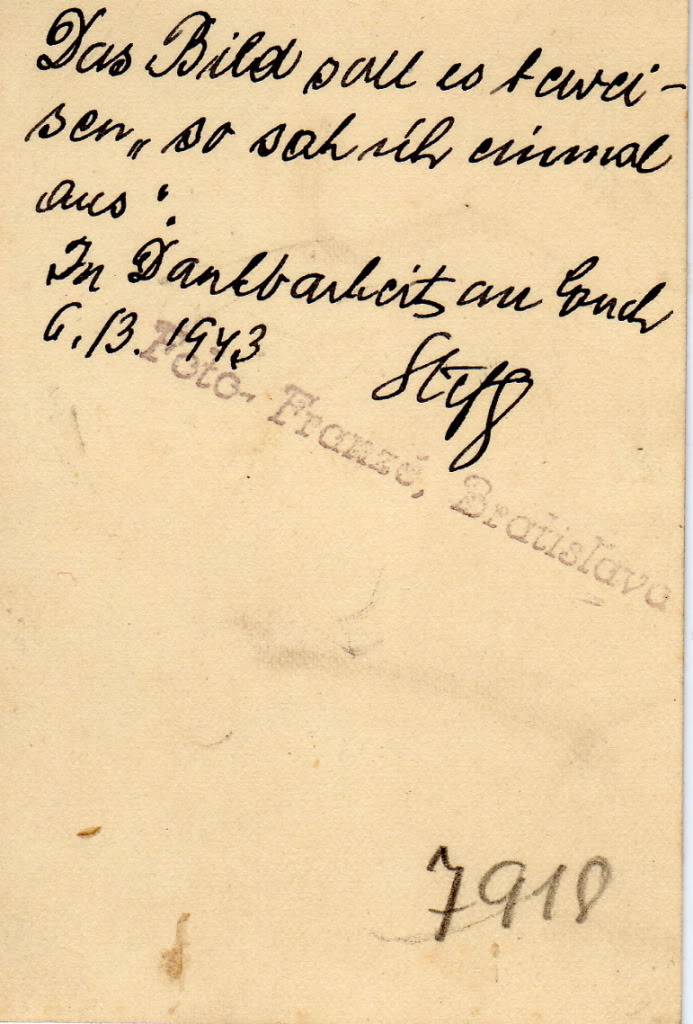 Das Bild soll es bewei-
sen„ so sah ich einmal
aus“.
In Dankbarkeit an Euch
6./3. 1943
Foto- Franzé, Bratislava
7918